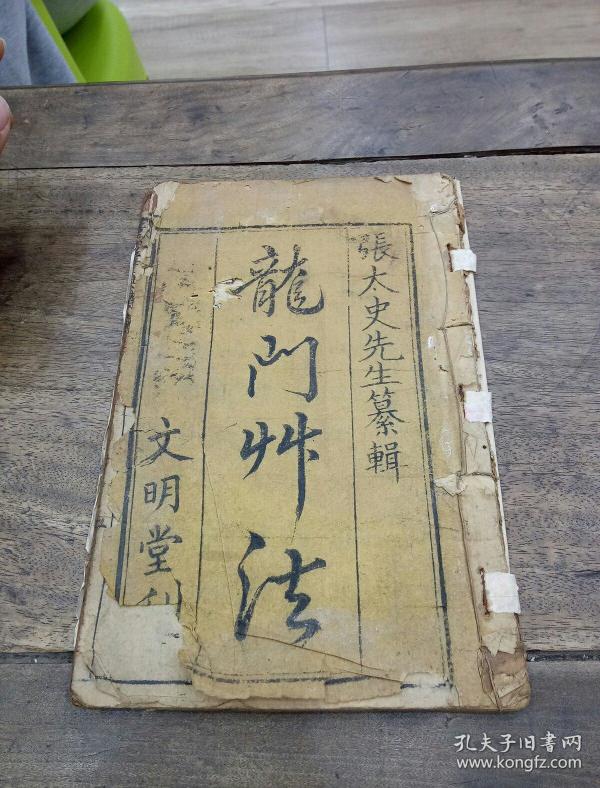 張太史先生纂輯
龍門艸法
文明堂
孔夫子旧书网
www.kongfz.com